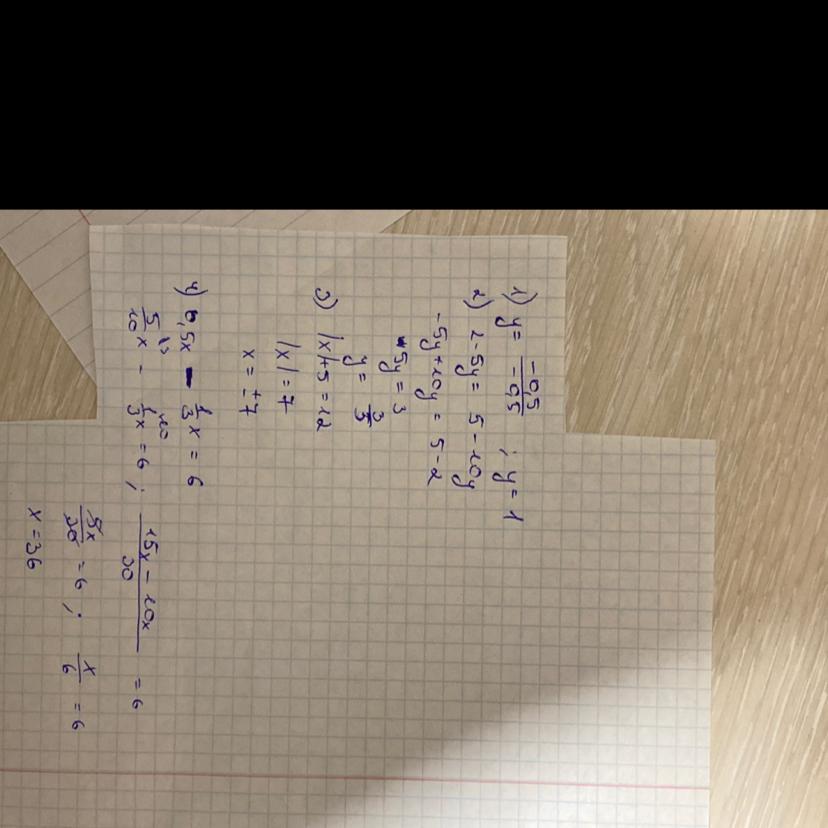 1) y = -0,5/-0,5 ; y = 1
2) 2-5y = 5-10y
-5y+10y = 5-2
5y = 3
y = 3/5
3) |x|+5=12
|x|=7
x = ±7
4) 0,5x - 1/3 x = 6
5/10 x - 1/3 x = 6 ; 15x-10x/30 = 6
5x/30 = 6 ; x/6 = 6
x = 36